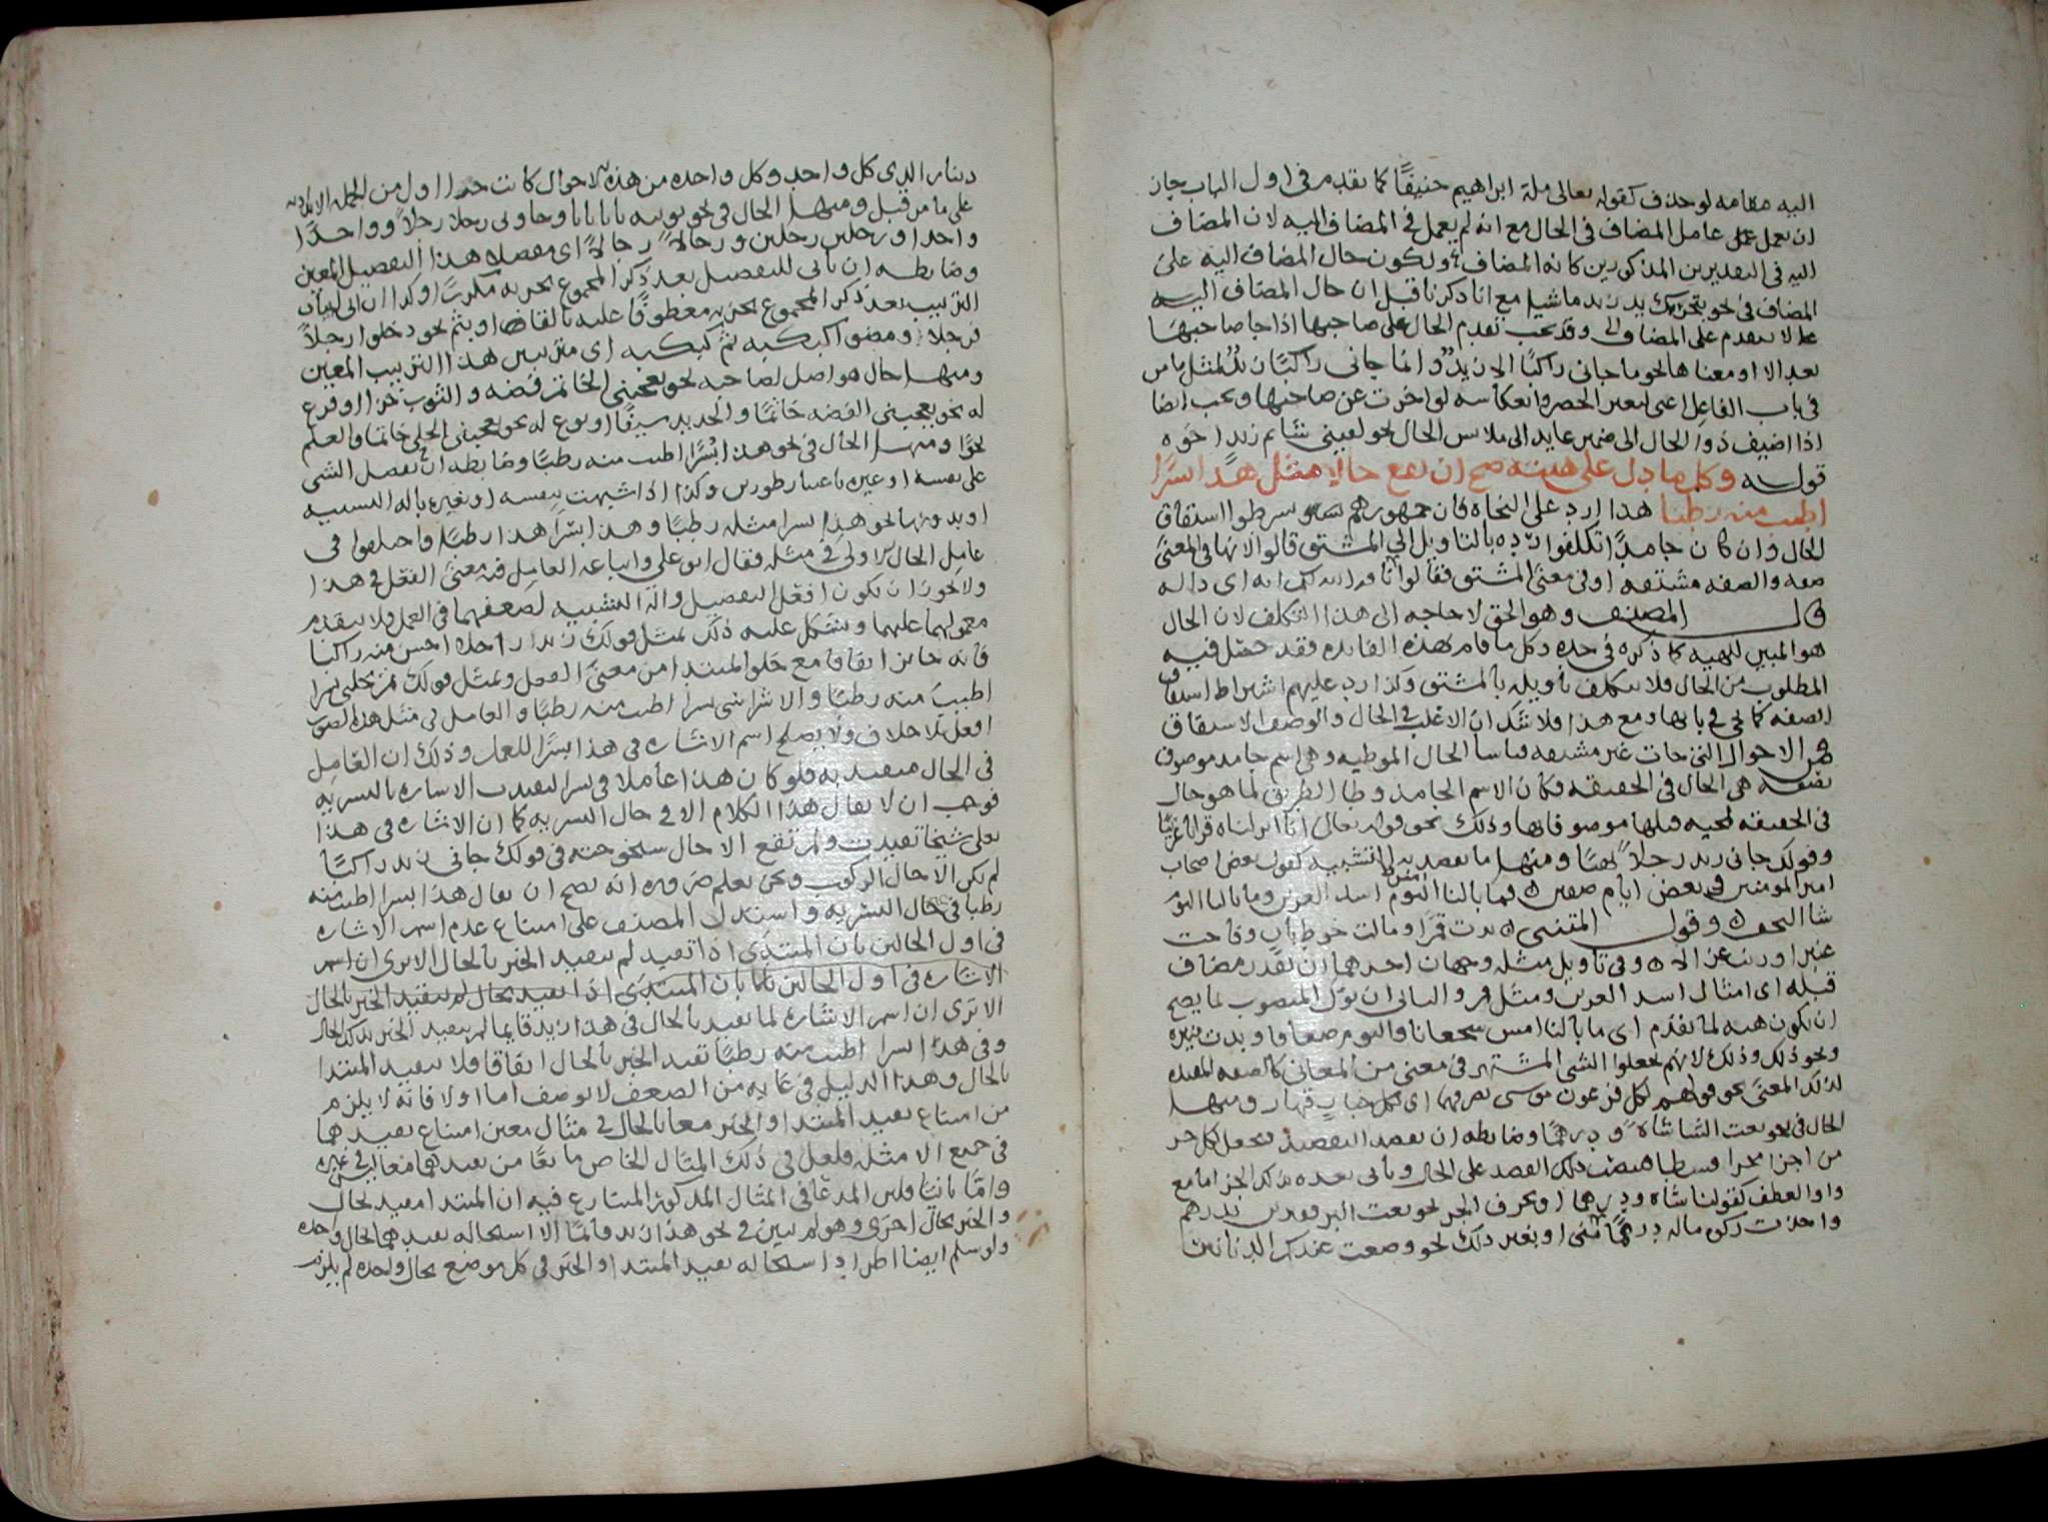 اليه مقامه لو حذف كقوله تعالى ملة ابراهيم حنيفًا كما تقدم في اول الباب جاز
ان يعمل عامل المضاف في الحال مع انه لم يعمل في المضاف اليه لان المضاف
اليه في التقديرين المذكورين كانه المضاف ولكون حال المضاف اليه على
المضاف في نحو تحرك يد زيد ماشيا مع انا ذكرنا قبل ان حال المضاف اليه
لا يتقدم على المضاف وقد يجب تقدم الحال على صاحبها اذا جا صاحبها
بعد الا او معناها نحو ما جانى راكبًا الا زيدٌ وانما جانى راكبًا زيدٌ لمثل ما مر
في باب الفاعل اعنى لتغير الحصر وانعكاسه لو اخرت عن صاحبها ويجب ايضا
اذا اضيف ذو الحال الى ضمير عايد الى ملابس الحال نحو لقيني شاتم زيد اخوه
قوله وكل ما دل على هيئة صح ان يقع حالا مثل هذا بسرًا
اطيب منه رطبا هذا رد على النحاة فان جمهورهم شرطوا اشتقاق
الحال وان كان جامدًا تكلفوا رده بالتاويل الى المشتق قالوا لانها في المعنى
صفه والصفه مشتقه او في معنى المشتق فقالوا في
قال المصنف وهو الحق لا حاجه الى هذا التكلف لان الحال
هو المبين للهيه كما ذكره في حده وكل ما قام بهذه الفايده فقد حصل فيه
المطلوب من الحال فلا يتكلف تأويله بالمشتق وكذا رد عليهم اشتراط اشتقاق
الصفه كما يجي في بابها ومع هذا فلا شك ان الاغلب في الحال والوصف الاشتقاق
فمن الاحوال التي جات غير مشتقه قياسا الحال الموطيه وهي اسم جامد موصوف
بصفه هي الحال في الحقيقه فكان الاسم الجامد وطا الطريق لما هو حال
في الحقيقه لمجيه قبلها موصوفا بها وذلك نحو قوله تعالى انا انزلناه قرانا عربيًا
وقولك جانى زيد رجلاً بهيًا ومنها ما يقصد به التشبيه كقول بعض اصحاب
امير المومنين في بعض ايام صفين فما بالنا امس اسد العرين وما بالنا اليوم
شا النجف وقول المتنبي بدت قمرًا ومالت خوط بان وفاحت
عنبرا ورنت غزالا وفي تأويل مثله وجهان احدهما ان تقدر مضاف
قبله اى امثال اسد العرين ومثل قمر والثانى ان يؤل المنصوب بما يصح
ان يكون هيه لما تقدم اى ما بالنا امس شجعانا واليوم ضعافا وبدت نيره
ونحو ذلك وذلك لانهم جعلوا الشى المشتهر في معنى من المعاني كالصفه المفيده
لذلك المعنى نحو قولهم لكل فرعون موسى بصرفهما اى لكل جبار قهار ومنها
الحال في نحو بعت الشا شاةً ودرهمًا وضابطه ان يقصد التقسيط فتجعل لكل جز
من اجزا متجزا قسطا فتنصب ذلك القسط على الحال وياتى بعده بذلك الجز اما مع
واو العطف كقولنا شاة ودرهما او بحرف الجر نحو بعت البر قفيزين بدرهم
واخذت زكوة ماله درهمًا او بغير ذلك نحو وضعت عندك الدنانير
دينارا لدى كل واحد وكل واحده من هذه الاحوال كانت جزا اول من الجمله الابتدائيه
على ما مر قبل ومنها الحال في نحو بوبته بابا بابا وجاونى رجلا رجلاً وواحدًا
واحدا ورجلين رجلين ورجالا رجالاً اى مفصلا هذا التفصيل المعين
وضابطه ان ياتى للتفصيل بعد ذكر المجموع بجزيه مكررًا وكذا ان اتى لبيان
الترتيب بعد ذكر المجموع بجزيه معطوفًا عليه بالفاء او بثم نحو دخلوا رجلاً
فرجلا ومضوا كبكبه ثم كبكبه اى مترتبين هذا الترتيب المعين
ومنها حال هو اصل لصاحبه نحو يعجبنى الخاتم فضه والثوب خزا او فرع
له نحو يعجبنى الفضه خاتمًا والحديد سيفًا او نوع له نحو يعجبنى الحلى خاتما والعلم
نحوًا ومنها الحال في نحو هذا بسرًا اطيب منه رطبًا وضابطه ان يفضل الشى
على نفسه او غيره باعتبار طورين وكذا اذا شبهت بنفسه او بغيره باله التشبيه
او بدونها نحو هذا بسرا مثله رطبًا وهذا بسرًا هذا رطبًا واختلفوا في
عامل الحال الاولى في مثله فقال ابو على واتباعه العامل فيه معنى الفعل في هذا
ولا يجوز ان يكون افعل التفضيل والة التشبيه لضعفهما في العمل ولا يتقدم
معمولهما عليهما ويشكل عليه ذلك بمثل قولك زيد راجلا احسن منه راكبا
فانه جائز اتفاقا مع خلو المبتدا من معنى الفعل وبمثل قولك تمر نخلتى بسرا
اطيب منه رطبًا والا شراشى بسرا اطيب منه رطبًا والعامل في مثل هذه الصور
افعل بلا خلاف ولا يصلح اسم الاشاره في هذا بسرًا للعمل وذلك ان العامل
في الحال متقيد به فلو كان هذا عاملا في بسرا لتقيدت الاشاره بالبسريه
فوجب ان لا يقال هذا الكلام الا في حال البسريه كما ان الاشاره في هذا
بعلى شيخا تقيدت ولم تقع الا حال شيخوخته في قولك جانى زيد راكبًا
لم يكن الا حال الركوب ونحن نعلم ضروره انه يصح ان يقال هذا بسرا اطيب منه
رطبا في حال البسريه واستدل المصنف على امتناع عدم اسم الاشاره
في اول الحالين بان المبتدى اذا تقيد لم يتقيد الخبر بالحال الا ترى ان اسم
الاشاره في اول الحالين بان المبتدى اذا تقيد بحال لم يتقيد الخبر بالحال
الا ترى ان اسم الاشاره لما تقيد بالحال في هذا زيد قايما لم يتقيد الخبر بذلك الحال
وفي هذا بسرا اطيب منه رطبًا تقيد الخبر بالحال اتفاقا فلا يتقيد المبتدا
بالحال وهذا الدليل في غايه من الضعف لا يوصف اما اولا فانه لا يلزم
من امتناع تقييد المبتدا والخبر معا بالحال في مثال معين امتناع تقييدهما
في جميع الامثله فلعل في ذلك المثال الخاص مانعًا من تقييدهما معا ليس في غيره
واما ثانيا فليس المدعا في المثال المذكور المتنازع فيه ان المبتدا مقيد بحال
والخبر بحال اخرى وهو لم يبين في نحو هذا زيد قائمًا الا استحاله تقييدهما بحال واحده
ولو سلم ايضا اطراد استحاله تقييد المبتدا والخبر في كل موضع بحال واحده لم يلزم